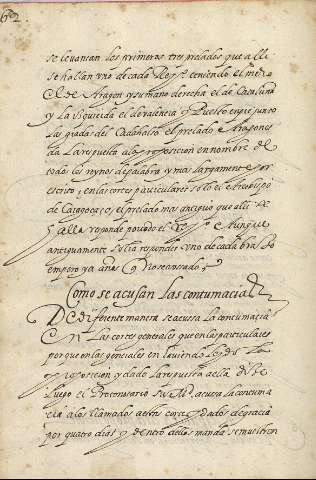 62
se levantan los primeros tres prelados que alli
se hallan uno de cada Reyno teniendo el medio
el de Aragon y su mano derecha el de Cataluña
y la izquierda el de valencia y Puesto en pie junto
las gradas del Cadahalso el prelado de Aragon
da la respuesta a la proposicion en nombre de
todos los reynos de palabra y mas largamente por
escrito, en las cortes particulares solo el Arcobispo
de Caragoça, o, el prelado mas antiguo que alli se
halla responde por todo el Reyno e Aunque
antiguamente solia responder uno de cada braço
empero ya años q no se a usado
Como se acusan las contumacias
De diferente manera se acussa la contumacia
En las cortes generales que en las particulares
porque en las generales en haviendo leydo la
proposicion y dado la respuesta a ella dize
luego el Protonotario su Mg. acussa la contuma
cia a los llamados a estas cortes y dados de gracia
por quatro dias y dentro dellos manda se muestren